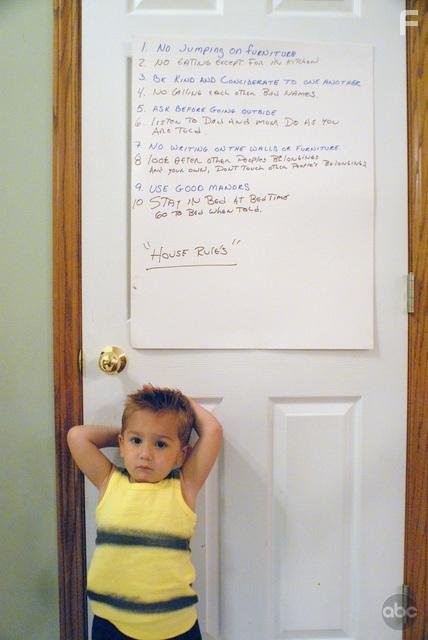 1. NO Jumping on FURNITURE
2 NO EATING EXCEPT FOR IN KITCHEN
3. BE KIND AND CONCIDERATE TO ONE ANOTHER
4. NO CALLING EACH OTHER BAD NAMES.
5. ASK BEFORE GOING OUTSIDE
6. LISTEN TO DAD AND MOM DO AS YOU
ARE TOLD.
7. NO WRITING ON THE WALLS OR FURNITURE
8 LOOK AFTER OTHER PEOPLES BELONGINGS
AND YOUR OWN, DONT TOUCH OTHER PEOPLE'S BELONGINGS
9. USE GOOD MANORS
10 STAY IN BED AT BEDTIME
GO TO BED WHEN TOLD.
"HOUSE RULE'S"
F
abc